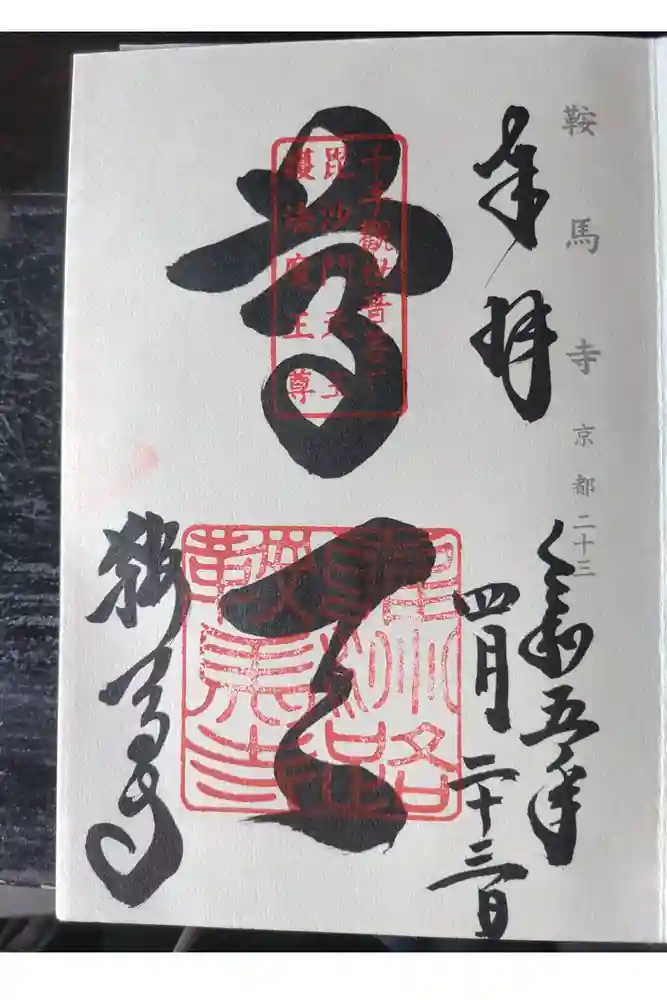 鞍馬寺 京都二十三
奉拝
令和五年
四月二十三日
千手觀世音菩薩
毗沙門天王
護法魔王尊
尊天
鞍馬寺
鞍馬寺